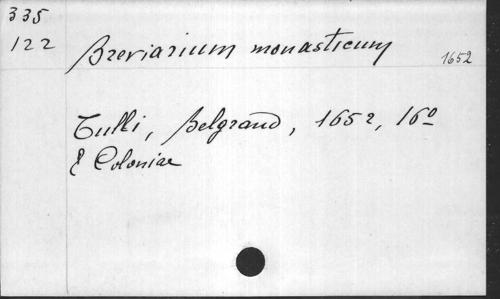 335
122
Breviarium monasticum
1652
Tulli, Belgrand, 1652, 16º
& Coloniae